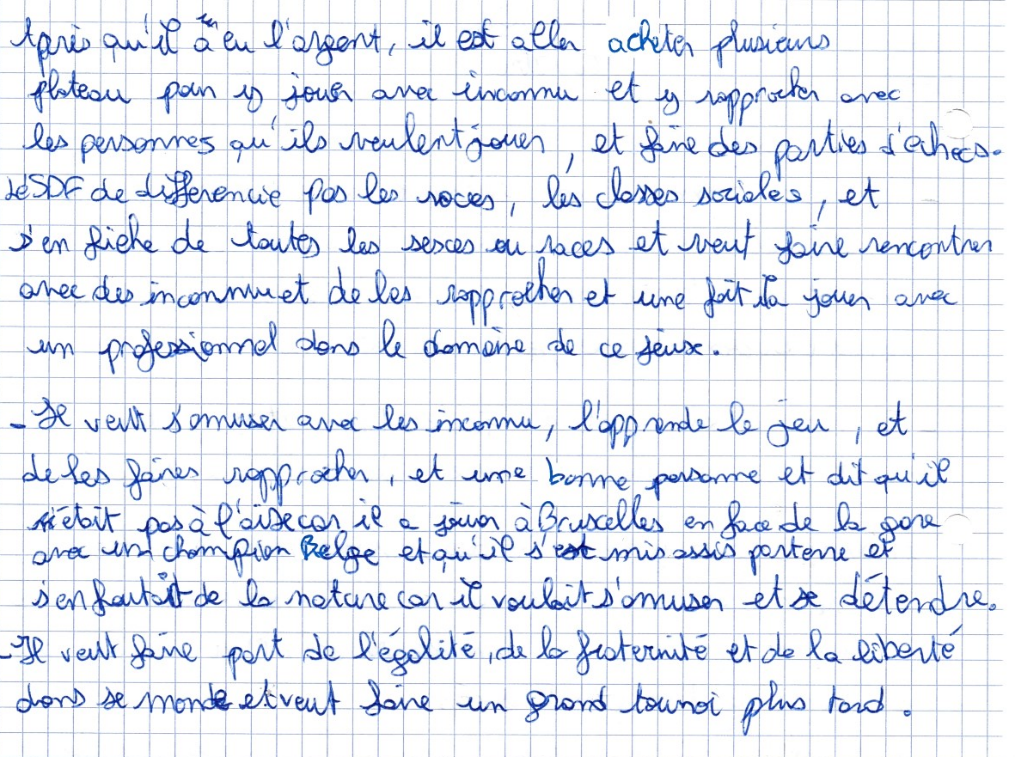 Après qu'il a eu l'argent, il est aller acheter plusieurs
plateau pour y jouer avec inconnu et y rapprocher avec
les personnes qu'ils veulent jouer, et faire des parties d'échecs.
Le SDF de differencie pas les races, les classes sociales, et
s'en fiche de toutes les sesces ou races et veut faire rencontrer
avec des inconnu et de les rapprocher et une foit la jouer avec
un professionnel dans le domaine de ce jeux.
- Il veut s'amuser avec les inconnu, l'apprende le jeu, et
de les faires rapprocher, et une bonne personne et dit qu'il
n'était pas à l'aise car il a jouer à Bruxelles en face de la gare
avec un champion Belge et qu'il s'est mis assis parterre et
s'en foutait de la nature car il voulait s'amuser et se détendre.
- Il veut faire part de l'égalité, de la fraternité et de la liberté
dans se monde et veut faire un grand tournoi plus tard.